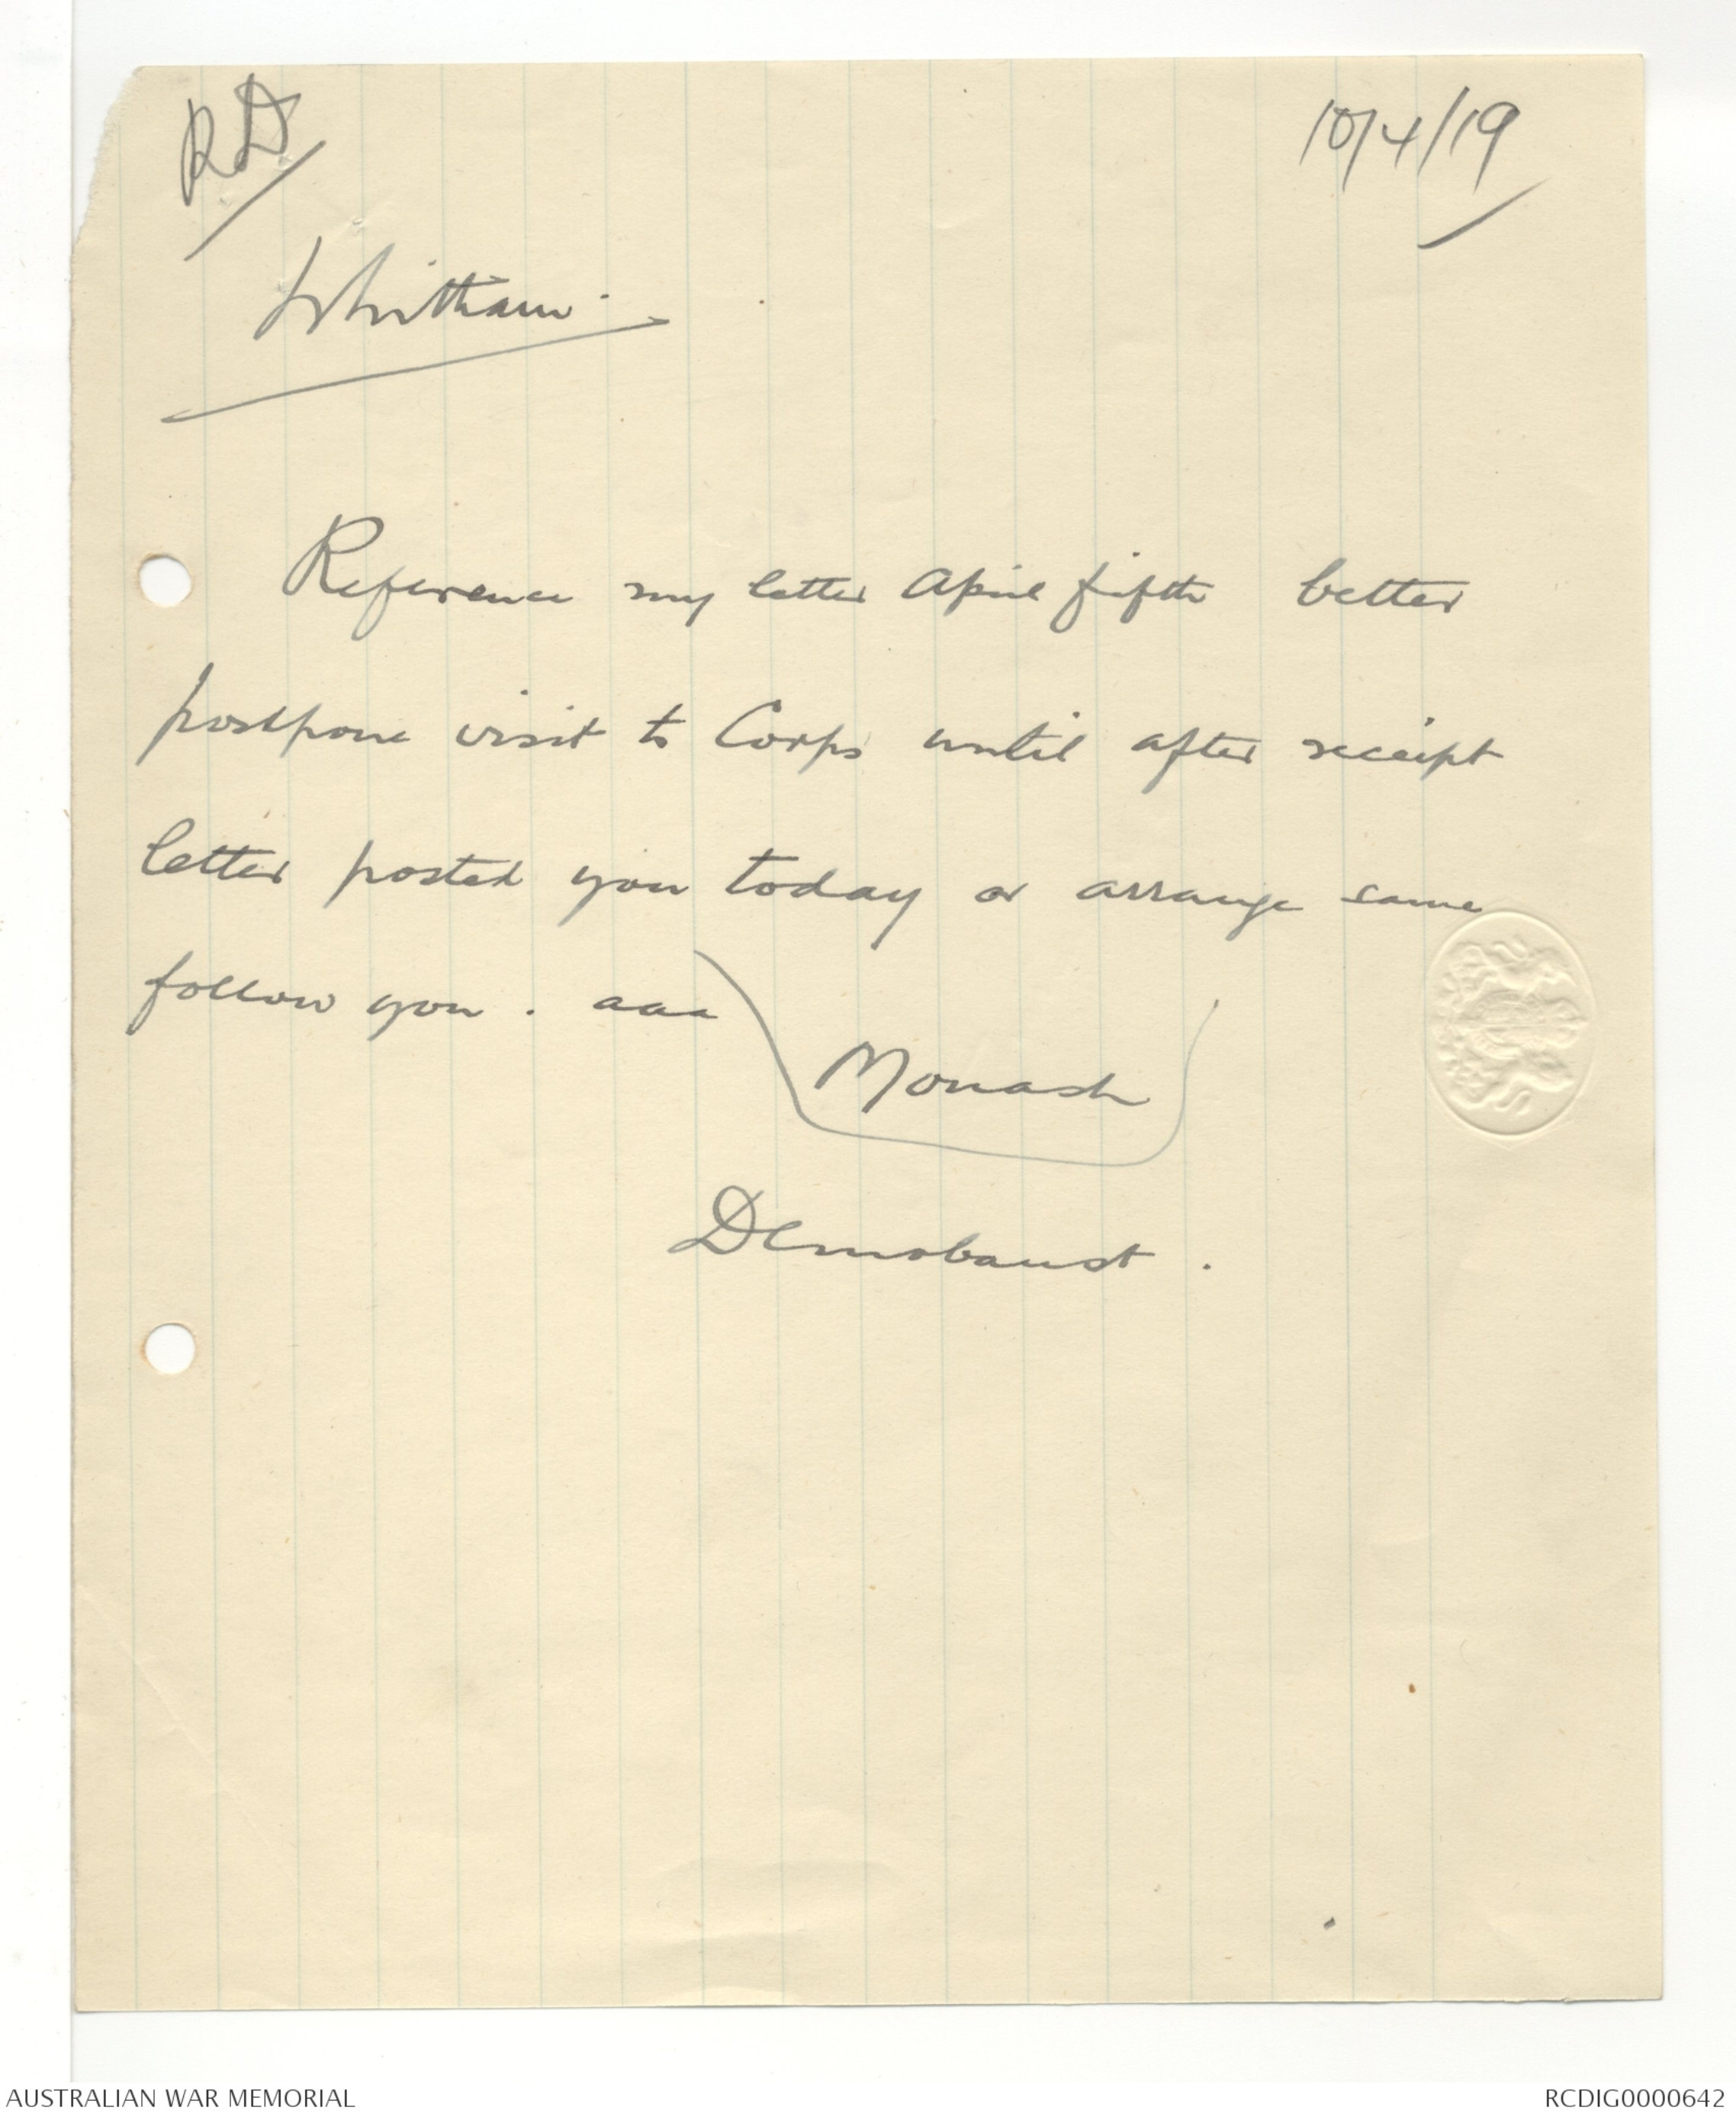 RD
10/4/19
Whitham.
Reference my letter April fifth better
postpone visit to Corps until after receipt
letter posted you today or arrange same
follow you. aaa
Monash
Demobaust.
AUSTRALIAN WAR MEMORIAL
RCDIG0000642